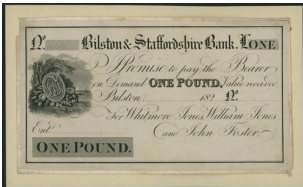 No. Bilston & Staffordshire Bank. £ONE
I Promise to pay the Bearer
on Demand ONE POUND, Value received
Bilston 182 No.
For Whitmore Jones, William Jones
Ent and John Foster.
ONE POUND.